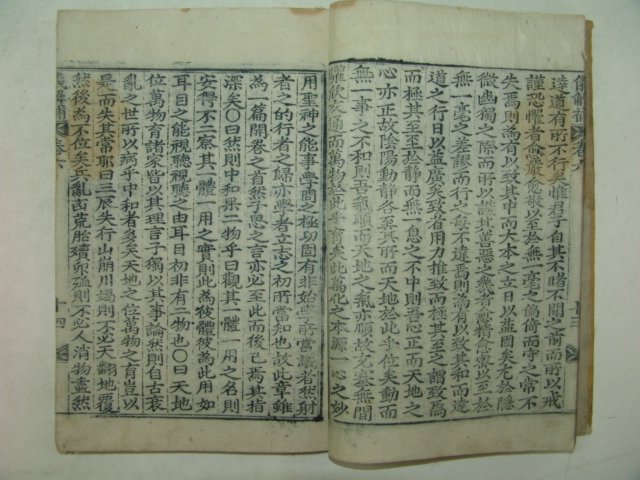 達道有所不行矣惟君子自其不睹不聞之前而所以戒
謹恐懼者愈嚴愈敬以至於無一毫之偏倚而守之常不
失焉則爲有以致其中而大本之立日以益固矣尤於隱
微幽獨之際而所以謹其善惡之幾者愈精愈密以至於
無一毫之差謬而行之每不違焉則爲有以致其和而達
道之行日以益廣矣致者用力推致而極其至之謂致焉
而極其至至於靜而無一息之不中則吾心正而天地之
心亦正故陰陽動靜各止其所而天地於此乎位矣動而
無一事之不和則吾氣順而天地之氣亦順故充塞無間
驩欣交通而萬物於此乎育矣此萬化之本源一心之妙
用聖神之能事學問之極功固有非始學所當議者然射
者之的行者之歸亦學者立志之初所當知也故此章雖
爲一篇開卷之首然子思之言亦必至此而後已焉其指
深矣○曰然則中和果二物乎曰觀其一體一用之名則
安得不二察其一體一用之實則此爲彼體彼爲此用如
耳目之能視聽視聽之由耳目初非有二物也○曰天地
位萬物育諸家皆以其理言子獨以其事論然則自古衰
亂之世所以病乎中和者多矣天地之位萬物之育豈以
是而失其常耶曰三辰失行山崩川竭則不必天翻地覆
然後爲不位矣兵亂凶荒胎殰卵殈則不必人消物盡然
卷六
十四